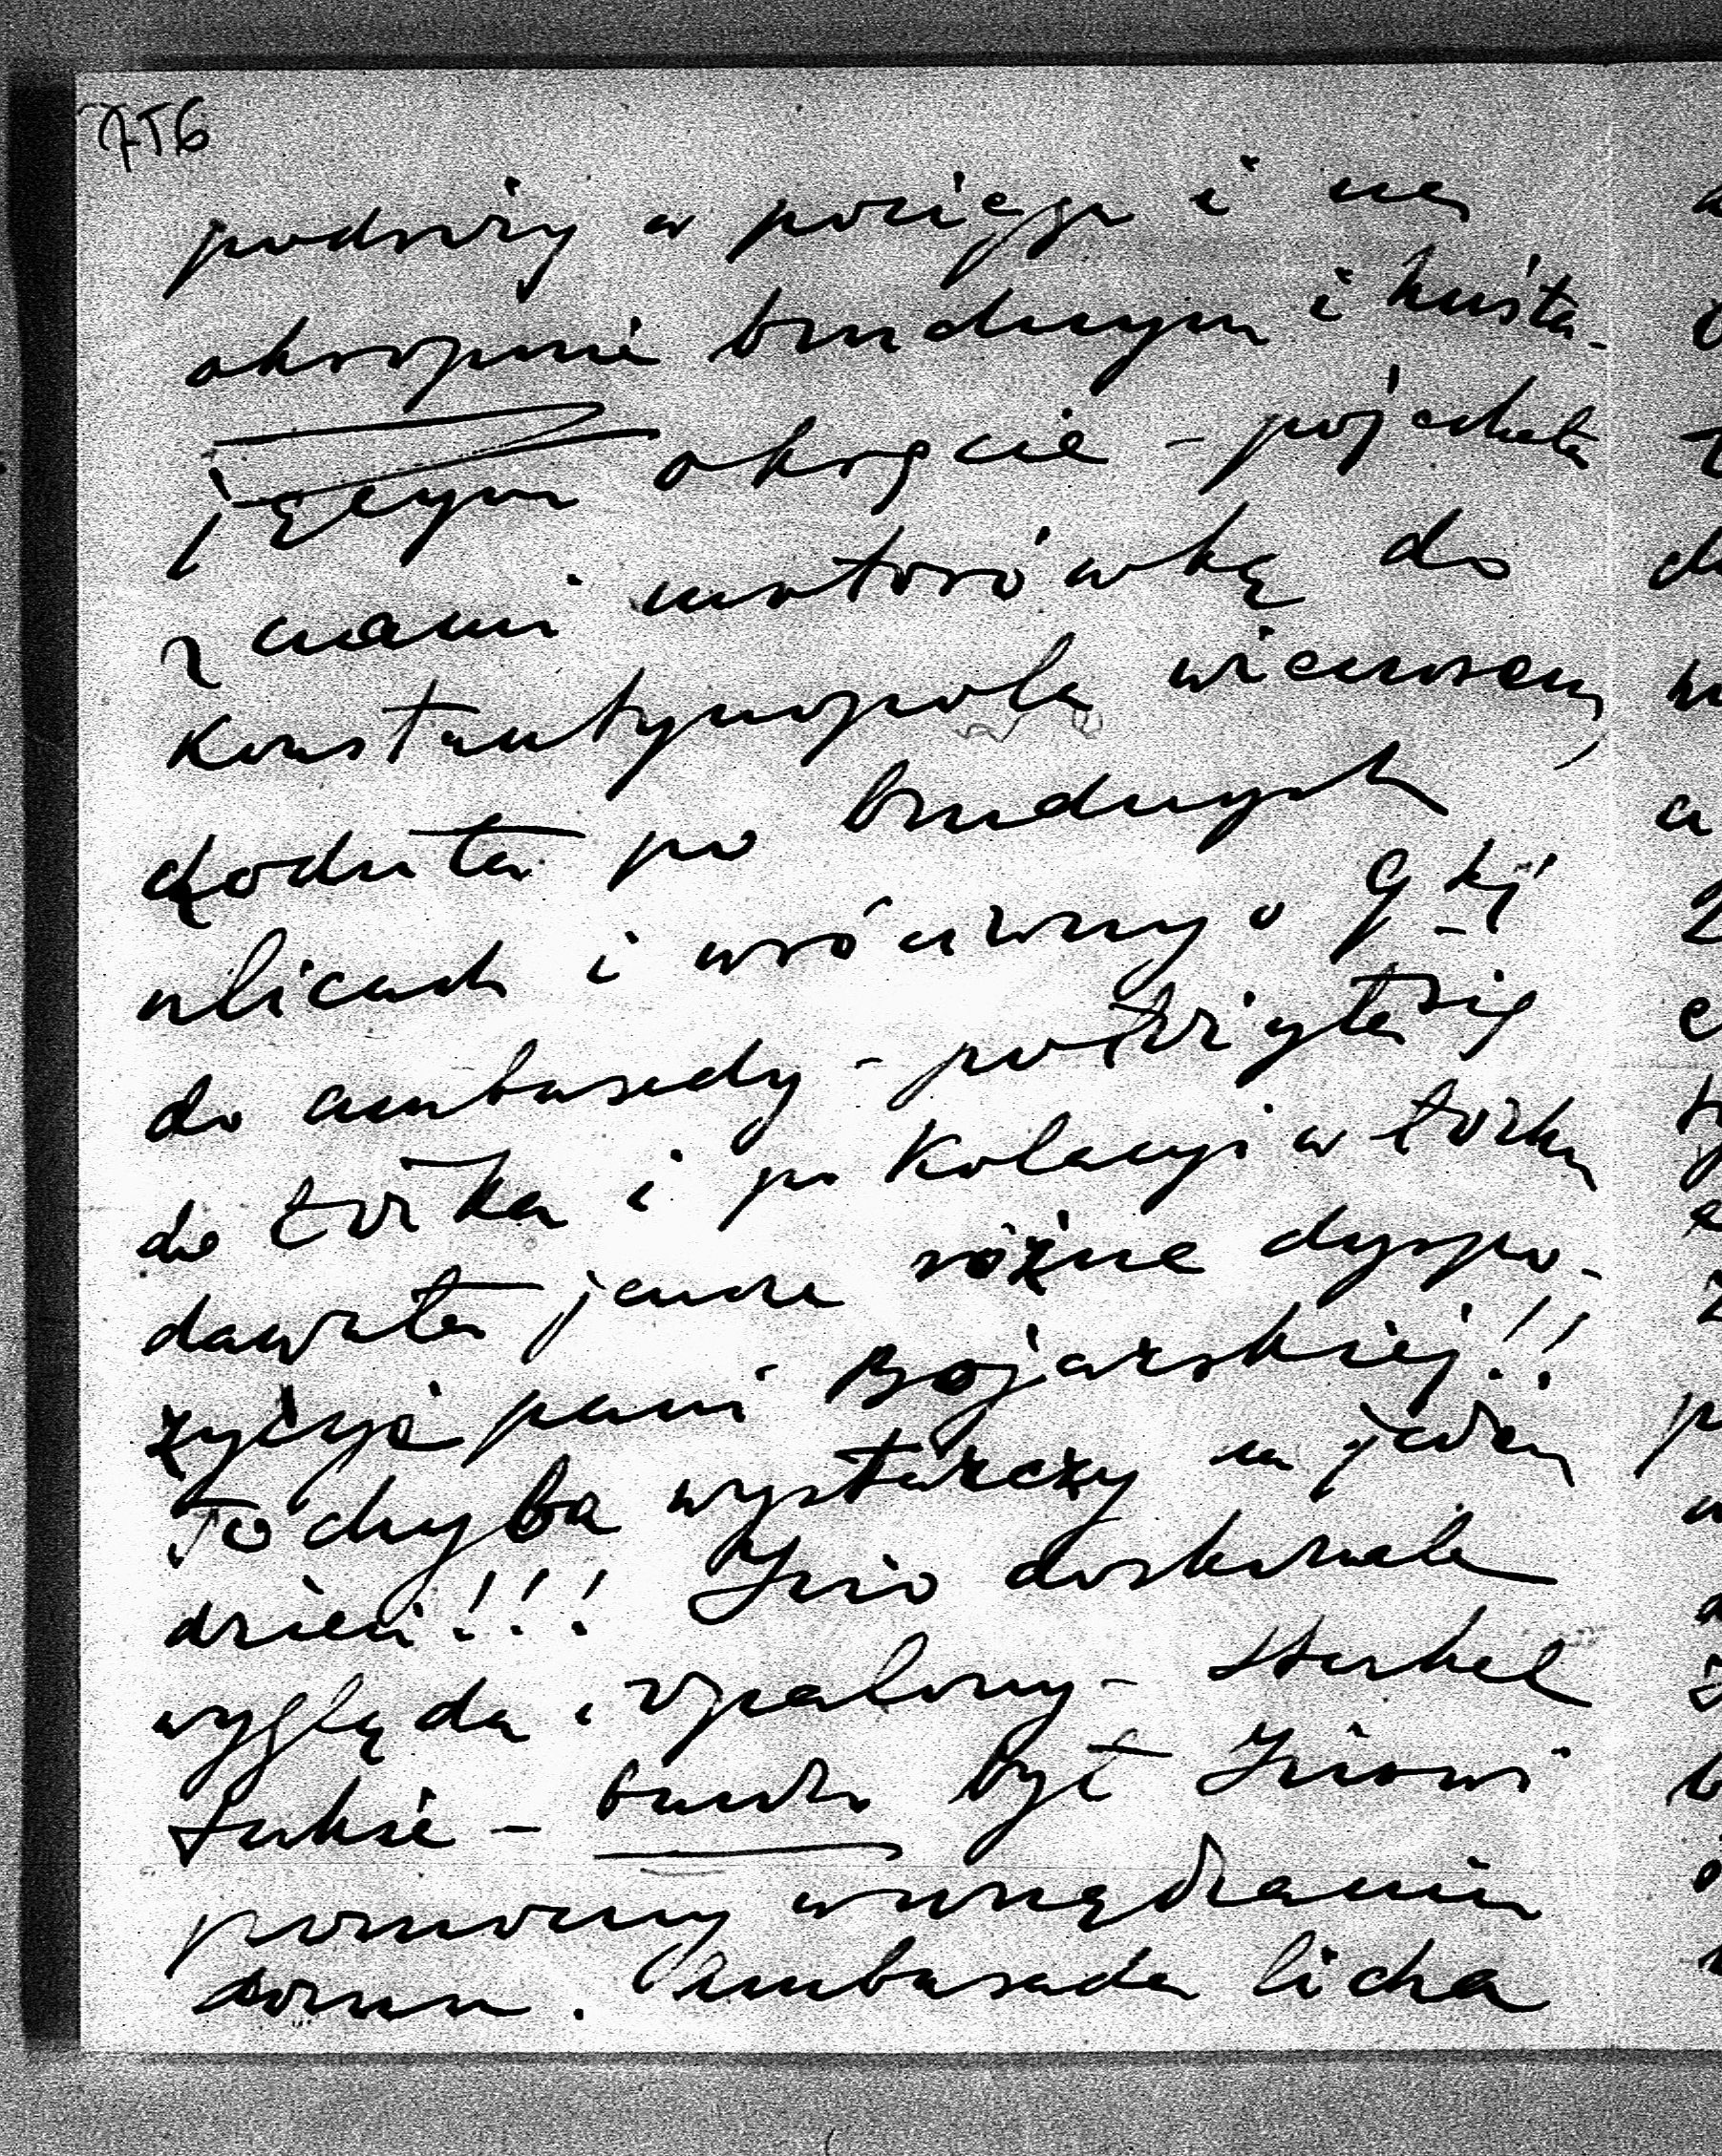 756
podróży w pociągu i na
okropnie brudnym i huśta-
jącym okręcie - pojechała
z nami motorówką do
Konstantynopola wieczorem,
chodziła po brudnych
ulicach i wróciwszy o 9tej
do ambasady - położyła się
do łóżka i po kolacyi w łóżku
dawała jeszcze różne dyspo-
zycye pani Bojarskiej!!
To chyba wystarczy na jeden
dzień!!! Józio doskonale
wygląda i opalony -
także - bardzo był Józiowi
pomocny w urządzaniu
domu. Ambasada licha